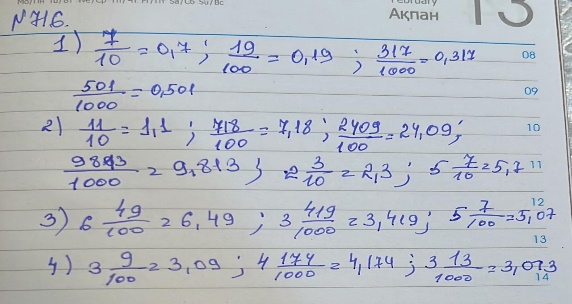 February
Ақпан
13
№716.
1) 7/10 = 0,7 ; 19/100 = 0,19 ; 317/1000 = 0,317
08
501/1000 = 0,501
09
2) 11/10 = 1,1 ; 718/100 = 7,18 ; 2409/100 = 24,09 ;
10
9813/1000 = 9,813 ; 2 3/10 = 2,3 ; 5 7/10 = 5,7
11
3) 6 49/100 = 6,49 ; 3 419/1000 = 3,419 ; 5 7/100 = 5,07
12
13
4) 3 9/100 = 3,09 ; 4 174/1000 = 4,174 ; 3 13/1000 = 3,013
14